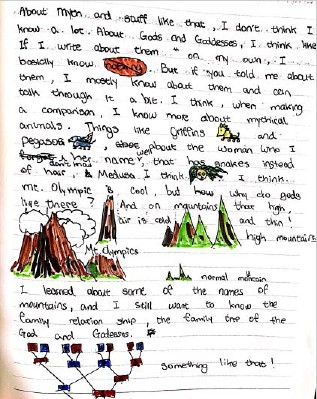 About Myth and stuff like that, I don't think I
know a lot. About Gods and Goddesses, I think, like
If I write about them " on my own, I
basiclly know nothing. But if you told me about
them, I mostly know about them and can
talk through it a bit. I think, when making
a comparison, I know more about mythical
animals. Things like Griffins and
Pegasos, also about the woman who I
forgot her name, that has snakes instead
of hair, & Medusa I think. I think...
mt. Olympic is cool, but how why do gods
live there? And on mountains that high,
air is cold and thin!
high mountains
Mt. Olympics
normal mountain
I learned about some of the names of
mountains, and I still want to know the
family relation ship, the family tree of the
God and Godesses.
something like that!